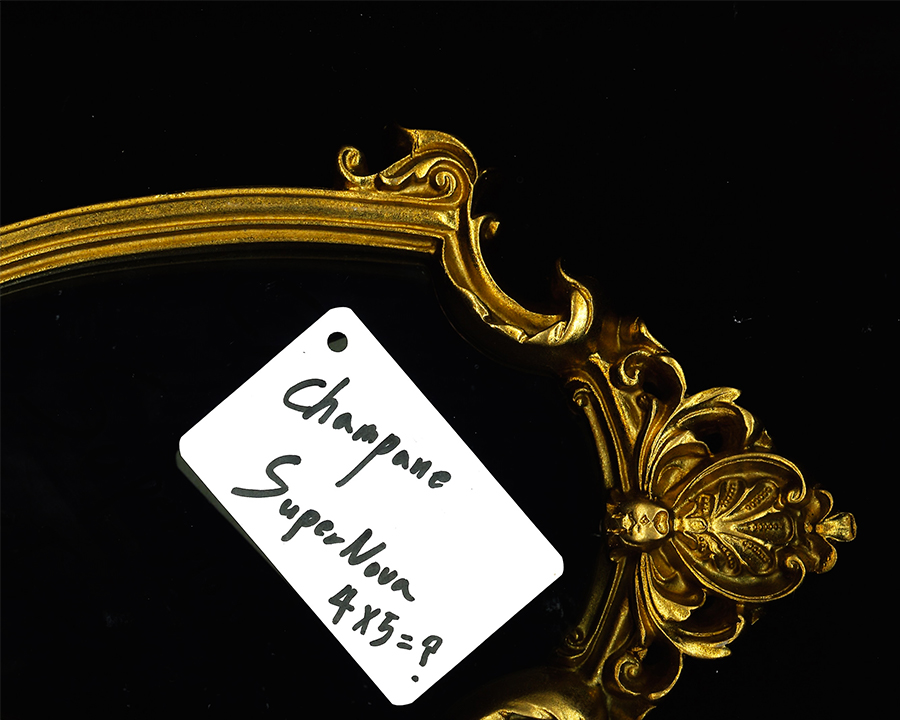 Champane
SuperNova
4x5=?